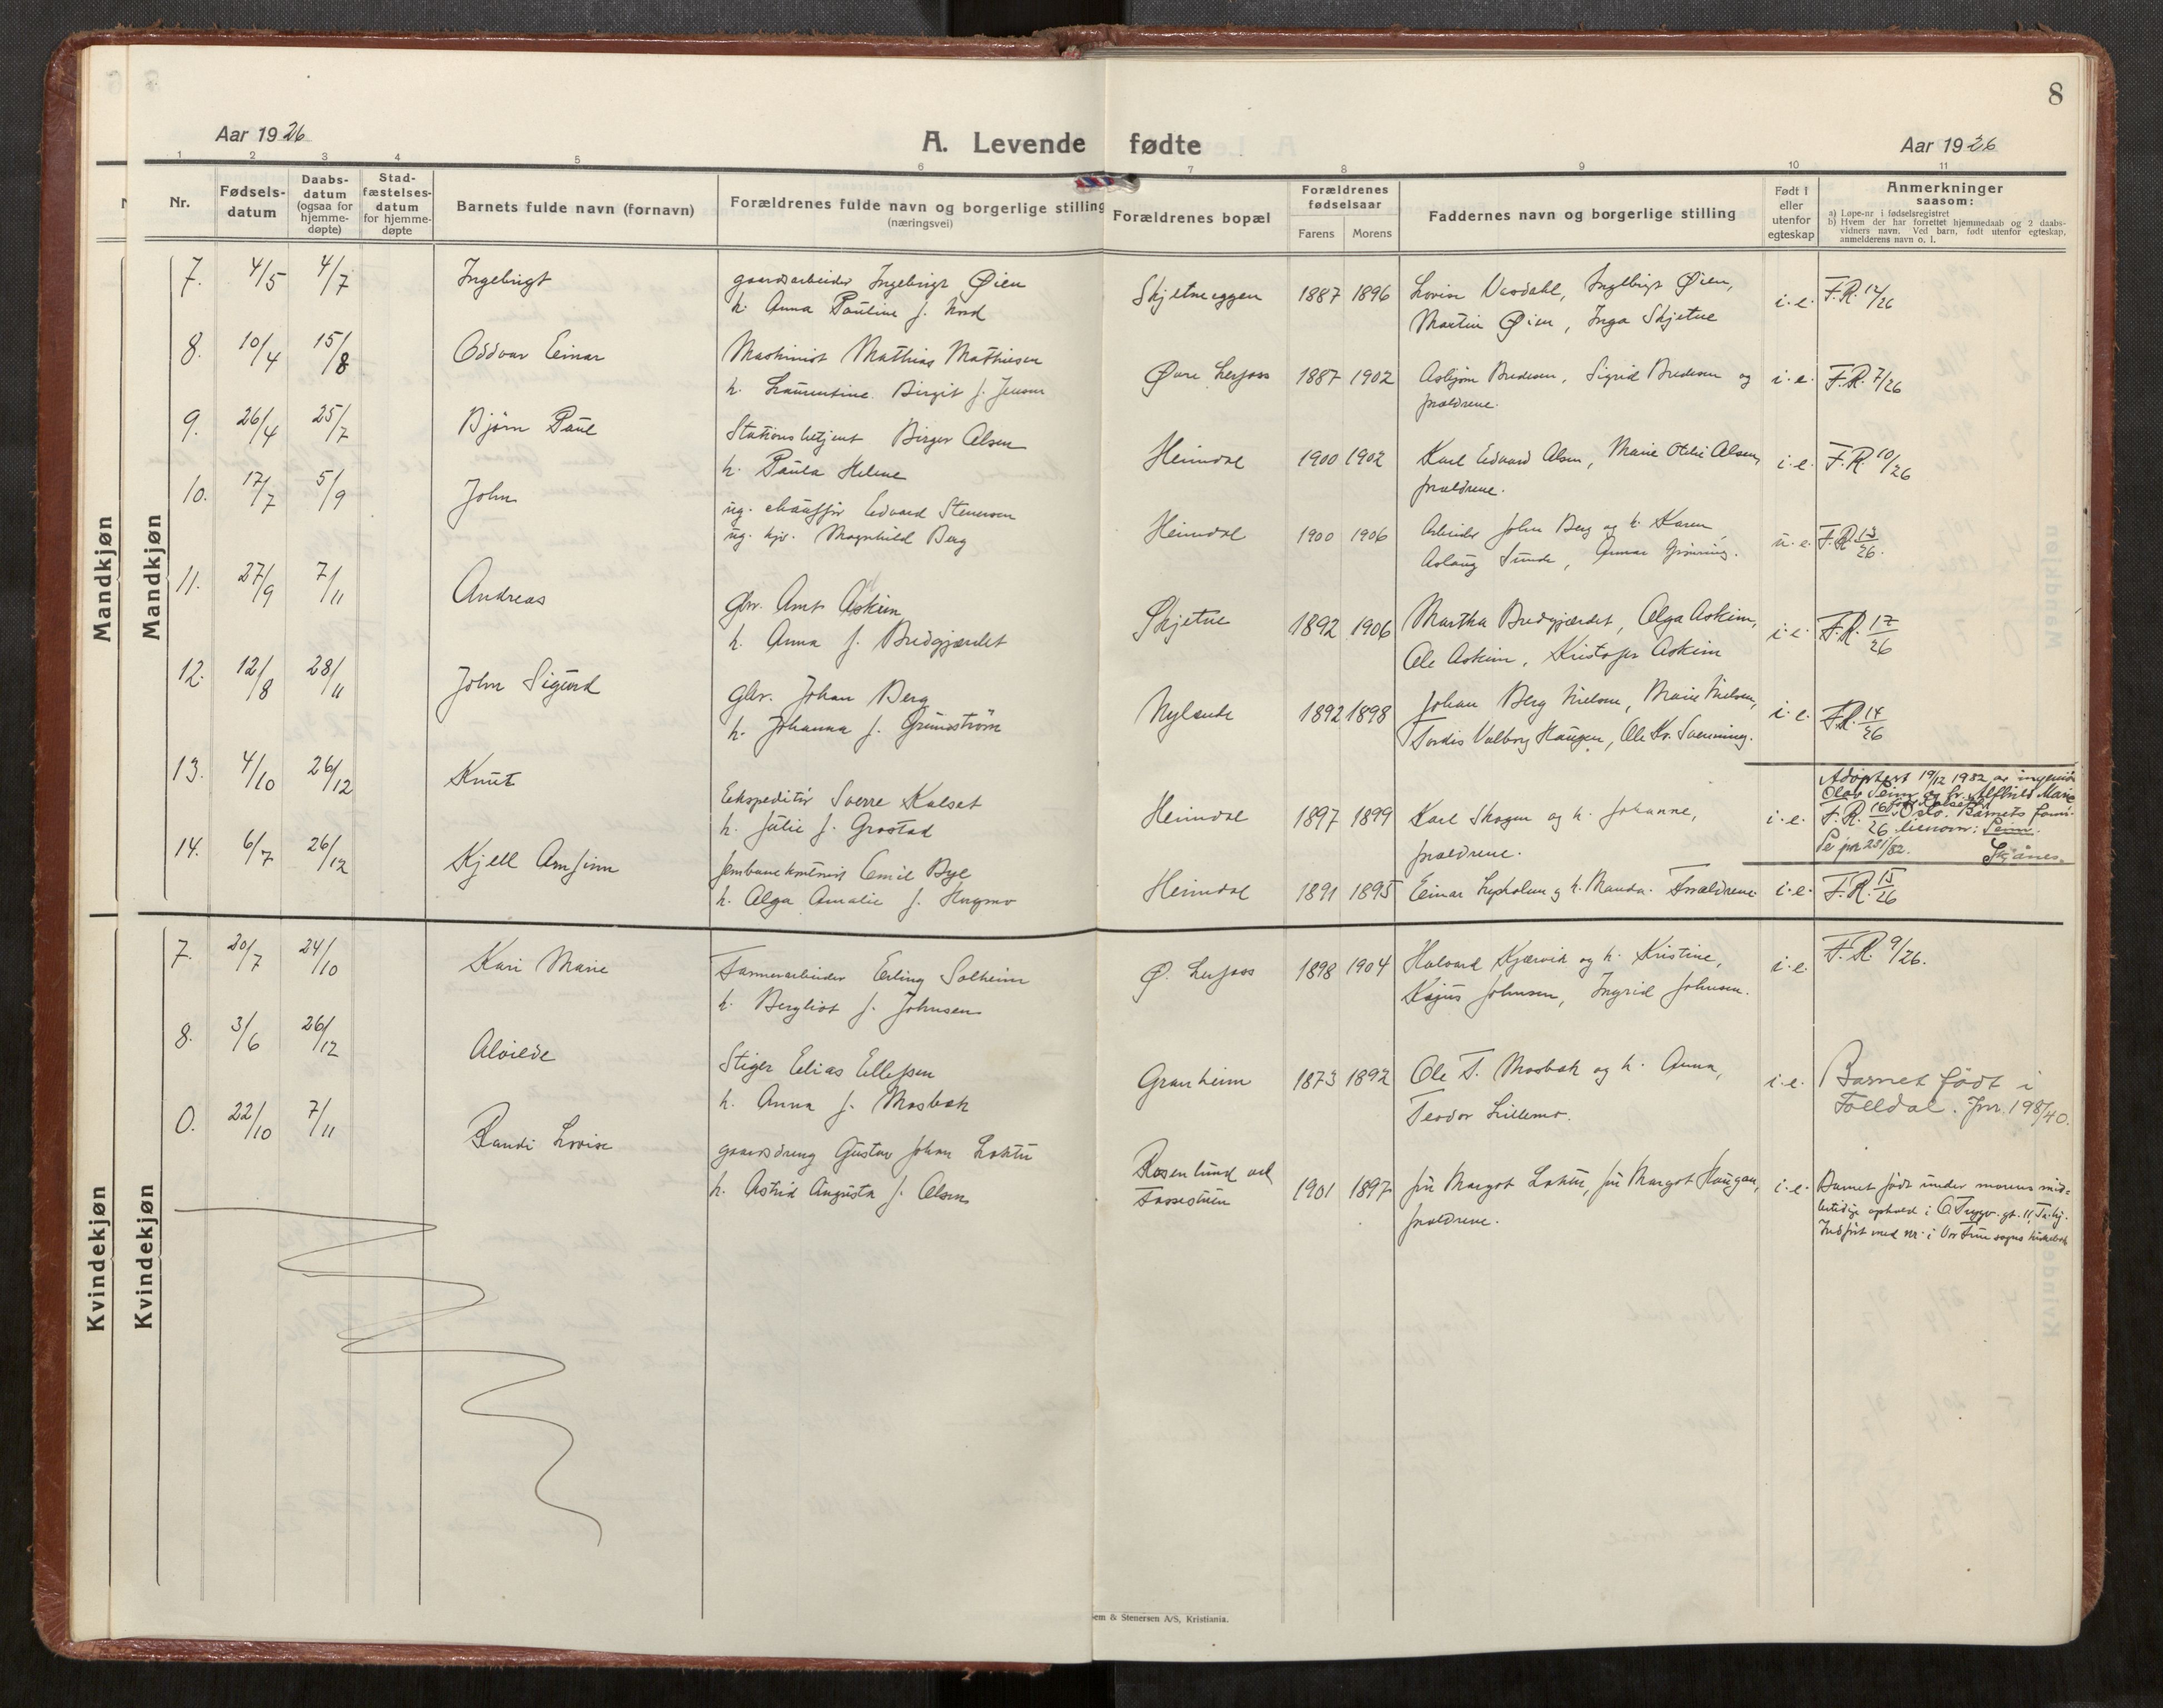 8
Aar 1926
A. Levende fødte
Aar 1926
1 2 3 4 5 6 7 8 9 10 11
Nr.
Fødsels-
datum
Daabs-
datum
(ogsaa for
hjemme-
døpte)
Stad-
fæstelses-
datum
for hjemme-
døpte
Barnets fulde navn (fornavn)
Forældrenes fulde navn og borgerlige stilling
(næringsvei)
Forældrenes bopæl
Forældrenes
fødselsaar
Farens Morens
Faddernes navn og borgerlige stilling
Født i
eller
utenfor
egteskap
Anmerkninger
saasom:
a) Løpe-nr i fødselsregistret
b) Hvem der har forrettet hjemmedaab og 2 daabs-
vidners navn. Ved barn, født utenfor egteskap,
anmelderens navn o. l.
Mandkjøn
Mandkjøn
7. 4/5 4/7 Ingebrigt gaardsarbeider Ingebrigt Øien Skjetneeggen 1887 1896 Lovise Vasdahl, Ingebrigt Øien, i.e. F.R. 12/26
h. Anna Pauline f. Nord Martin Øien, Inga Skjetne
8. 10/4 15/8 Oddvar Einar Maskinist Mathias Mathiesen Øvre Lerfoss 1887 1902 Asbjørn Bredesen, Sigrid Bredesen og i.e. F.R. 7/26
h. Laurentine Birgit f. Jenson forældrene.
9. 26/4 25/7 Bjørn Paul Stationsbetjent Birger Olsen Heimdal 1900 1902 Karl Edvard Olsen, Marie Otilie Olsen, i.e. F.R. 10/26
h. Paula Helene forældrene.
10. 17/7 5/9 John ug. chauffør Edvard Stenersen Heimdal 1900 1906 Arbeider John Berg og h. Karen, u.e. F.R. 13/26.
ug. kjv. Magnhild Berg Aslaug Sunde, Gunnar Grønning.
11. 27/9 7/11 Andreas gbr. Arnt Askim Skjetne 1892 1906 Martha Bredgjærdet, Olga Askim, i.e. F.R. 17/26
h. Anna f. Bredgjærdet Ole Askim, Kristofer Askim
12. 12/8 28/11 John Sigurd gbr. Johan Berg Nylende 1892 1898 Johan Berg Nielsen, Marie Nielsen, i.e. F.R. 14/26
h. Johanna f. Grundström Tordis Valborg Haugen, Ole Kr. Svenning.
13. 4/10 26/12 Knut Ekspeditør Sverre Kalset Heimdal 1897 1899 Karl Skogen og h. Johanne, i.e. F.R. 16/26
h. Julie f. Grostad forældrene.
Adoptert 19/12 1932 av ingeniør
Olav Seim og fr. Alfhild Marie
Oslo. Barnets fami-
lienavn: Seim.
Se jnr 231/32. Skjånes.
14. 6/7 26/12 Kjell Arnfinn Jernbanekontorist Emil Bye Heimdal 1891 1895 Einar Lysholm og h. Manda. Forældrene i.e. F.R. 15/26
h. Olga Amalie f. Hagmo
Kvindekjøn
Kvindekjøn
7. 20/7 24/10 Kari Marie Farmerarbeider Erling Solheim Ø. Lerfoss 1898 1904 Halvard Kjærvik og h. Kristine, i.e. F.R. 9/26.
h. Bergliot f. Johnsen Kajus Johnsen, Ingrid Johnsen.
8. 3/6 26/12 Alvilde Stiger Elias Ellefsen Granheim 1873 1892 Ole T. Mosbak og h. Anna, i.e. Barnet født i
h. Anna f. Mosbak Teodor Lillemo. Folldal. Jnr. 198/40.
0. 22/10 7/11 Randi Lovise gaardsdreng Gustav Johan Loktu Rosenlund ved 1901 1897 frk Margot Loktu, frk Margot Haugan, i.e. Barnet født under morens mid-
h. Astrid Augusta f. Olsen Fossestuen forældrene. lertidige ophold i O. Tryggv. gt. 11, Tr.hj.
Indført med nr. i Vor Frue sogns kirkebok
em & Stenersen A/S, Kristiania.